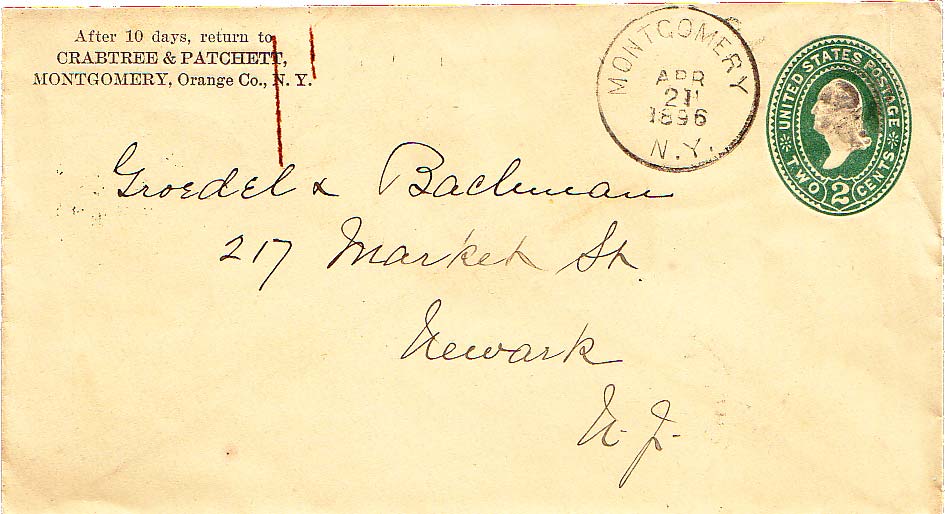 After 10 days, return to
CRABTREE & PATCHETT,
MONTGOMERY, Orange Co., N. Y.
MONTGOMERY
APR
21
1896
N.Y.
UNITED STATES POSTAGE
TWO 2 CENTS
Groedel & Bachman
217 Market St.
Newark
N. J.